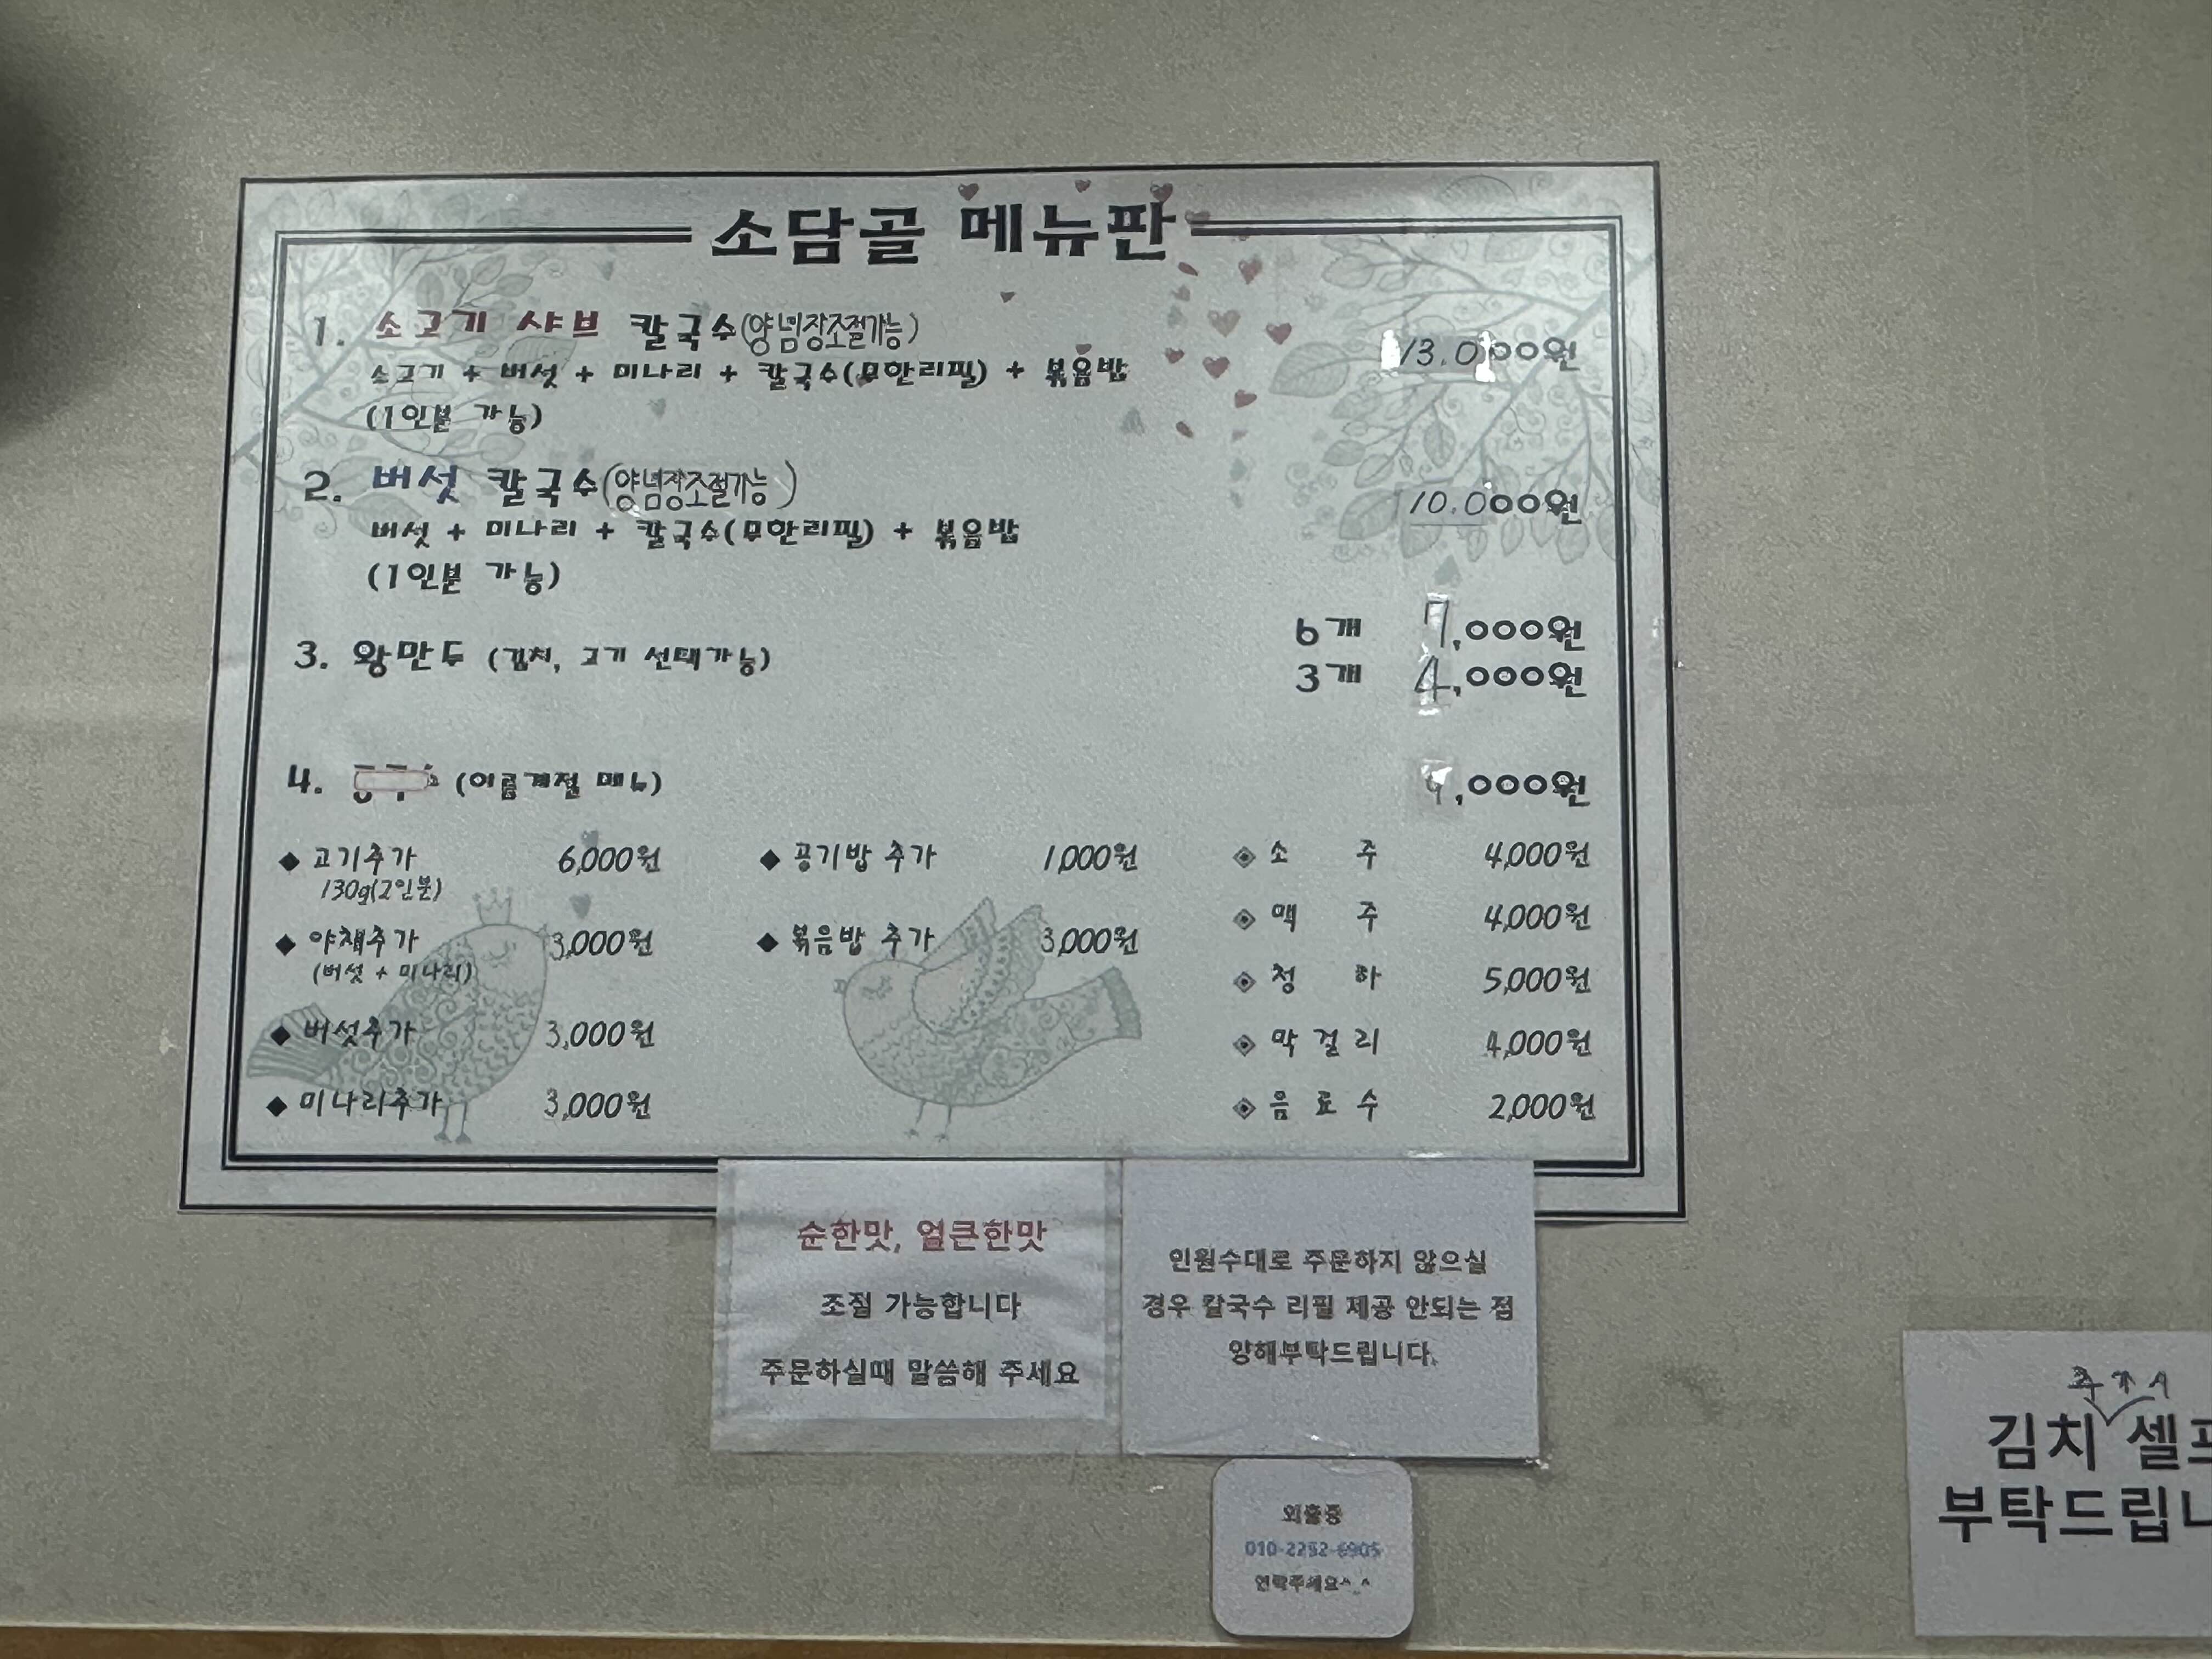 소담골 메뉴판
1. 소고기 샤브 칼국수(양념장조절가능) 13.000원
소고기 + 버섯 + 미나리 + 칼국수(무한리필) + 볶음밥
(1인분 가능)
2. 버섯 칼국수(양념장조절가능) 10.000원
버섯 + 미나리 + 칼국수(무한리필) + 볶음밥
(1인분 가능)
6개 7,000원
3. 왕만두 (김치, 고기 선택가능)
3개 4,000원
4. (여름계절 메뉴) ,000원
◆ 고기추가 6,000원
130g(2인분)
◆ 야채추가 3,000원
(버섯 + 미나리)
◆ 버섯추가 3,000원
◆ 미나리추가 3,000원
◆ 공기밥 추가 1,000원
◆ 볶음밥 추가 3,000원
◈ 소 주 4,000원
◈ 맥 주 4,000원
◈ 청 하 5,000원
◈ 막 걸 리 4,000원
◈ 음 료 수 2,000원
순한맛, 얼큰한맛
조절 가능합니다
주문하실때 말씀해 주세요
인원수대로 주문하지 않으실
경우 칼국수 리필 제공 안되는 점
양해부탁드립니다.
외출중
010-2252-6905
연락주세요^_^
추가시
김치 셀프
부탁드립니